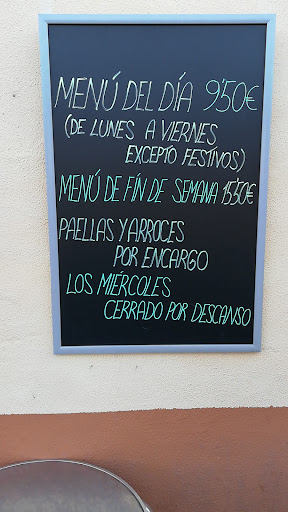 MENÚ DEL DÍA 9'50€
(DE LUNES A VIERNES
EXCEPTO FESTIVOS)
MENÚ DE FÍN DE SEMANA 15'50€
PAELLAS Y ARROCES
POR ENCARGO
LOS MIÉRCOLES
CERRADO POR DESCANSO